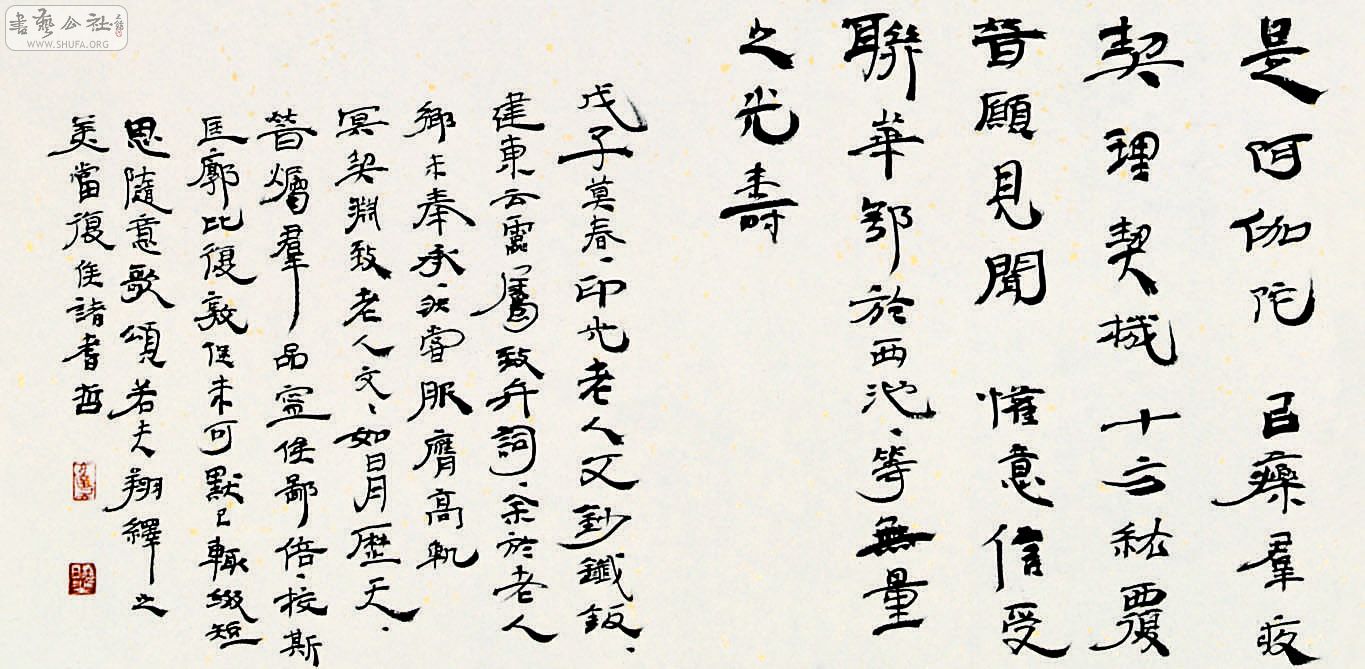 是阿伽陀 㠯藥羣疚
契理契機 十方祕覆
普願見聞 懽意信受
聯華鄂於西池、等無量
之光壽
戊子莫春、印光老人文鈔鐵鈑、
建東云靁屬致弁詞、余於老人
鄉未奉承、然嘗服膺高軌
冥契淵致老人文、如日月歷天、
普爥羣品寧俟鄙倍、校斯
匡廓比復敦促未可默已輒綴短
思隨意歌頌若夫翔繹之
美當復俟諸耆哲
書藝公社
WWW.SHUFA.ORG